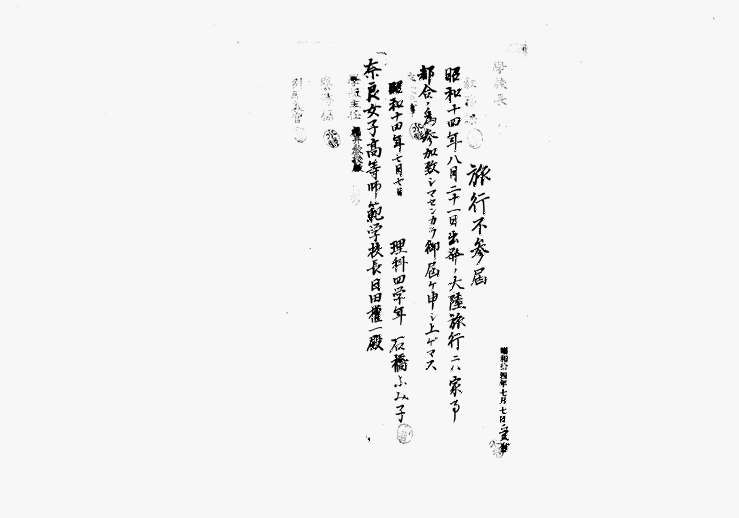 學校長
昭和拾四年七月七日受付
旅行不参届
昭和十四年八月二十一日出発ノ大陸旅行ニハ家事
都合ノ為参加致シマセンカラ御届ケ申シ上ゲマス
昭和十四年七月七日
理科四学年 石橋ふみ子
奈良女子高等師範学校長目田權一殿
學級主任